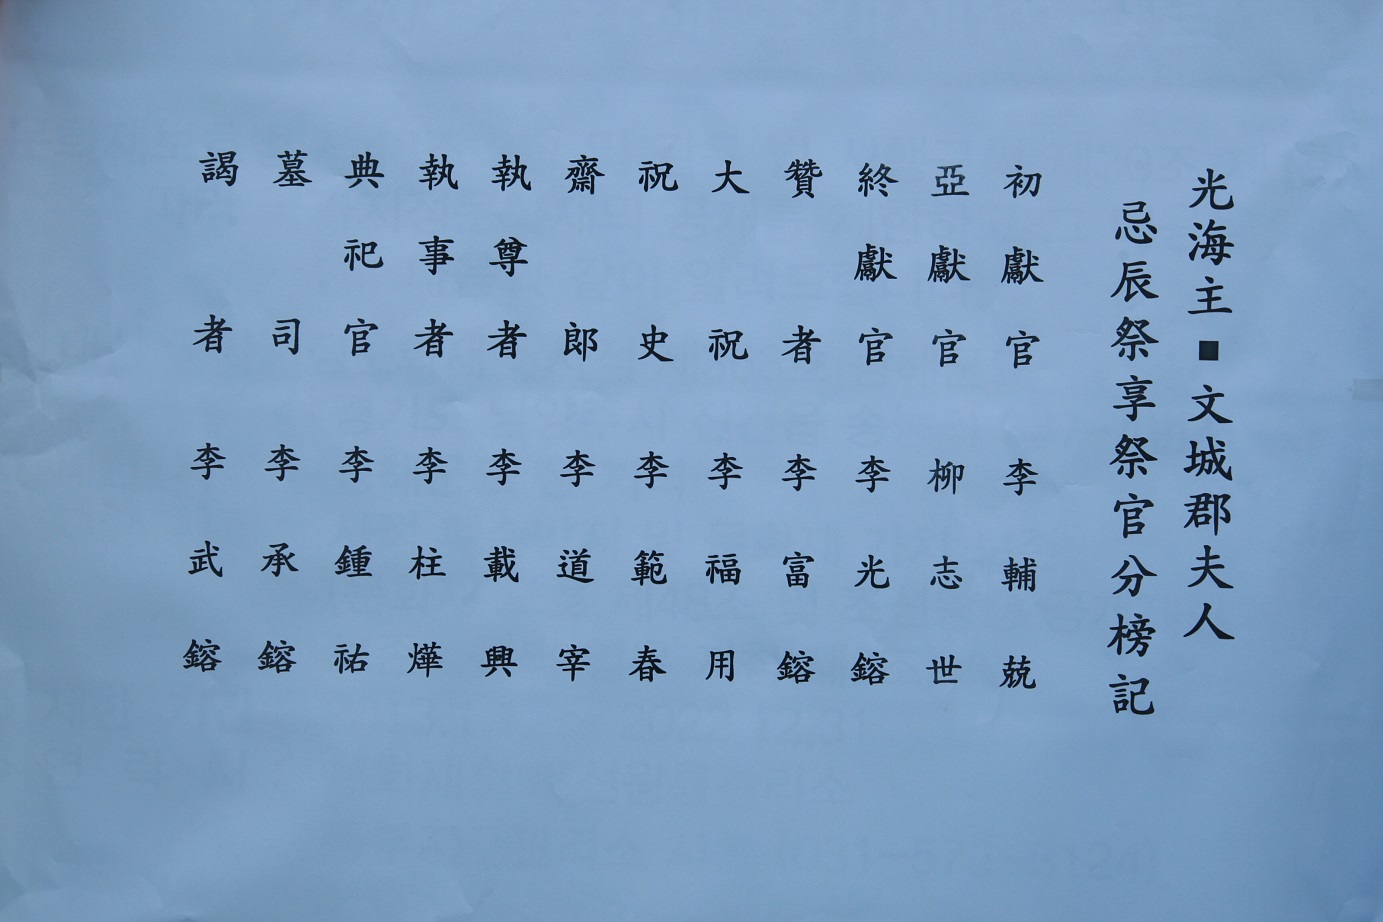 光海主■文城郡夫人
忌辰祭享祭官分榜記
初獻官 李輔兢
亞獻官 柳志世
終獻官 李光鎔
贊者 李富鎔
大祝 李福用
祝史 李範春
齋郎 李道宰
執尊者 李載興
執事者 李柱燁
典祀官 李鍾祐
墓司 李承鎔
謁者 李武鎔